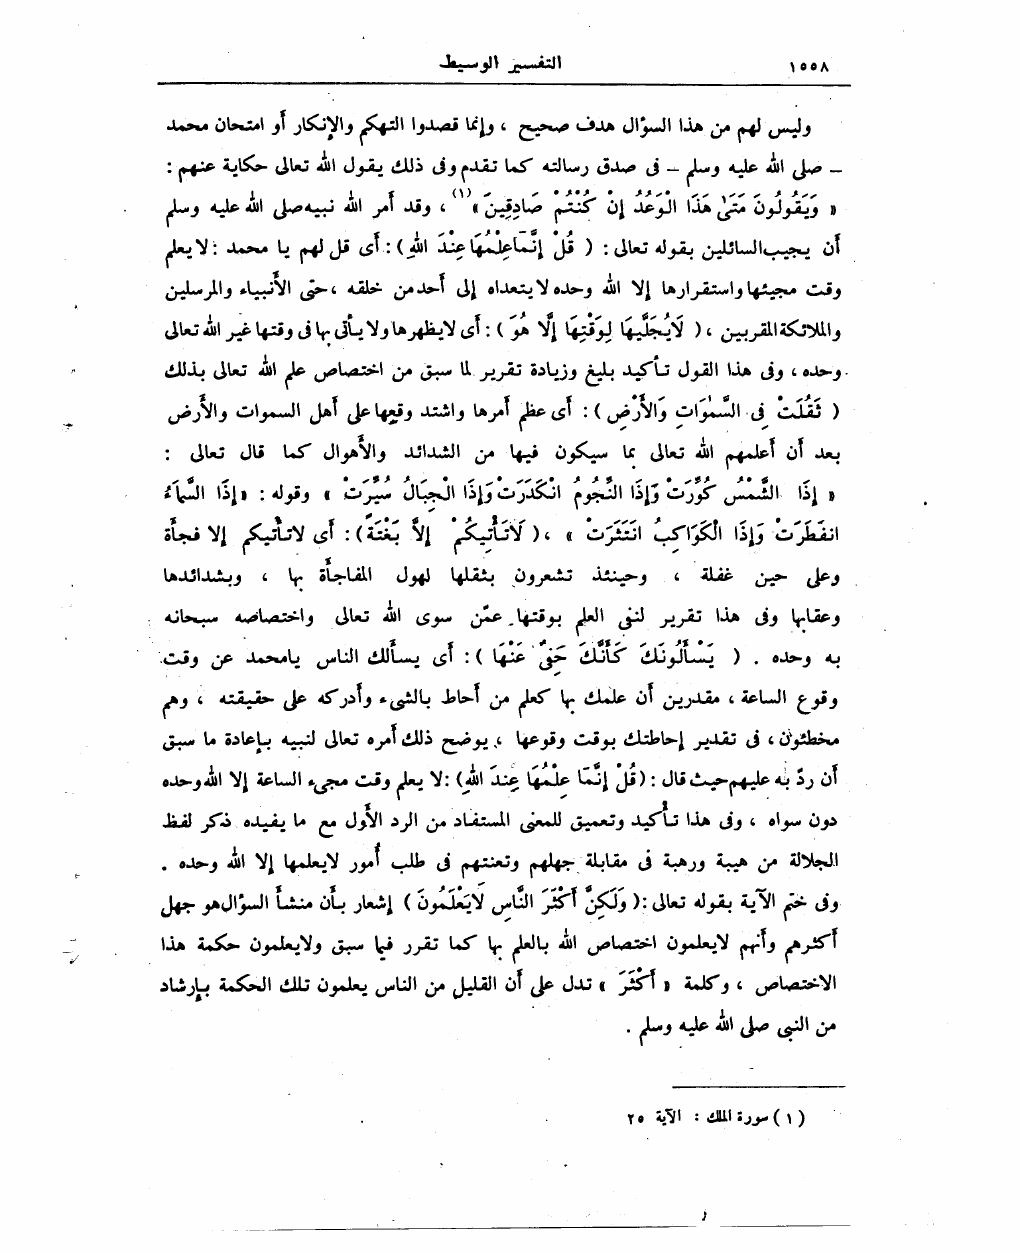 ١٥٥٨ التفسير الوسيط
وليس لهم من هذا السؤال هدف صحيح ، وإنما قصدوا التهكم والإنكار أو امتحان محمد
– صلى الله عليه وسلم – فى صدق رسالته كما تقدم وفى ذلك يقول الله تعالى حكاية عنهم :
« وَيَقُولُونَ مَتَىٰ هَذَا الْوَعْدُ إِنْ كُنْتُمْ صَادِقِينَ »(١) ، وقد أمر الله نبيه صلى الله عليه وسلم
أن يجيب السائلين بقوله تعالى : ( قُلْ إِنَّمَا عِلْمُهَا عِنْدَ اللهِ ) : أى قل لهم يا محمد : لا يعلم
وقت مجيئها واستقرارها إلا الله وحده لا يتعداه إلى أحد من خلقه ، حتى الأنبياء والمرسلين
والملائكة المقربين ، ( لَا يُجَلِّيهَا لِوَقْتِهَا إِلَّا هُوَ ) : أى لا يظهرها ولا يأتى بها فى وقتها غير الله تعالى
وحده ، وفى هذا القول تأكيد بليغ وزيادة تقرير لما سبق من اختصاص علم الله تعالى بذلك
( ثَقُلَتْ فِى السَّمٰوَاتِ وَالْأَرْضِ ) : أى عظم أمرها واشتد وقعها على أهل السموات والأرض
بعد أن أعلمهم الله تعالى بما سيكون فيها من الشدائد والأهوال كما قال تعالى :
« إِذَا الشَّمْسُ كُوِّرَتْ وَإِذَا النُّجُومُ انْكَدَرَتْ وَإِذَا الْجِبَالُ سُيِّرَتْ » وقوله : « إِذَا السَّمَاءُ
انفَطَرَتْ وَإِذَا الْكَوَاكِبُ انتَثَرَتْ » ، ( لَا تَأْتِيكُمْ إِلَّا بَغْتَةً ) : أى لا تأتيكم إلا فجأة
وعلى حين غفلة ، وحينئذ تشعرون بثقلها لهول المفاجأة بها ، وبشدائدها
وعقابها وفى هذا تقرير لنفى العلم بوقتها عمَّن سوى الله تعالى واختصاصه سبحانه
به وحده . ( يَسْأَلُونَكَ كَأَنَّكَ حَفِىٌّ عَنْهَا ) : أى يسألك الناس يا محمد عن وقت
وقوع الساعة ، مقدرين أن علمك بها كعلم من أحاط بالشىء وأدركه على حقيقته ، وهم
مخطئون ، فى تقدير إحاطتك بوقت وقوعها ، يوضح ذلك أمره تعالى لنبيه بإعادة ما سبق
أن ردّ به عليهم حيث قال : ( قُلْ إِنَّمَا عِلْمُهَا عِندَ اللهِ ) : لا يعلم وقت مجىء الساعة إلا الله وحده
دون سواه ، وفى هذا تأكيد وتعميق للمعنى المستفاد من الرد الأول مع ما يفيده ذكر لفظ
الجلالة من هيبة ورهبة فى مقابلة جهلهم وتعنتهم فى طلب أمور لا يعلمها إلا الله وحده .
وفى ختم الآية بقوله تعالى : ( وَلَكِنَّ أَكْثَرَ النَّاسِ لَا يَعْلَمُونَ ) إشعار بأن منشأ السؤال هو جهل
أكثرهم وأنهم لا يعلمون اختصاص الله بالعلم بها كما تقرر فيما سبق ولا يعلمون حكمة هذا
الاختصاص ، وكلمة « أَكْثَرَ » تدل على أن القليل من الناس يعلمون تلك الحكمة بإرشاد
من النبى صلى الله عليه وسلم .
( ١ ) سورة الملك : الآية ٢٥